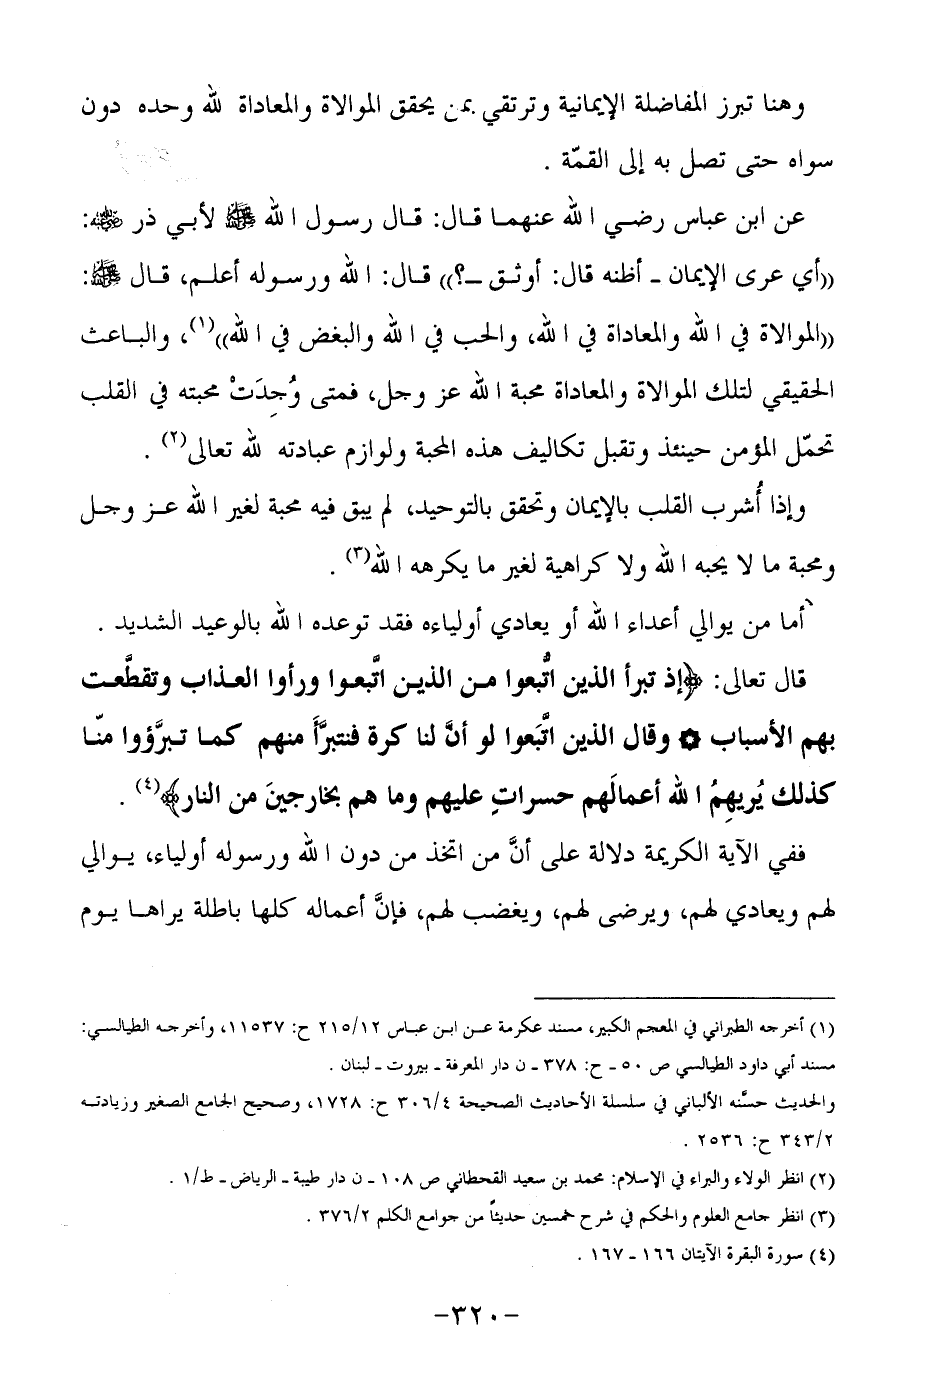 وهنا تبرز المفاضلة الإيمانية وترتقي بمن يحقق الموالاة والمعاداة لله وحده دون
سواه حتى تصل به إلى القمّة .
عن ابن عباس رضي الله عنهما قال: قال رسول الله ﷺ لأبي ذر ﵁:
((أي عرى الإيمان - أظنه قال: أوثق -؟)) قال: الله ورسوله أعلم، قال ﷺ:
((الموالاة في الله والمعاداة في الله، والحب في الله والبغض في الله))(١)، والباعث
الحقيقي لتلك الموالاة والمعاداة محبة الله عز وجل، فمتى وُجِدَتْ محبته في القلب
تحمّل المؤمن حينئذ وتقبل تكاليف هذه المحبة ولوازم عبادته لله تعالى(٢) .
وإذا أُشرب القلب بالإيمان وتحقق بالتوحيد، لم يبق فيه محبة لغير الله عز وجل
ومحبة ما لا يحبه الله ولا كراهية لغير ما يكرهه الله(٣) .
أما من يوالي أعداء الله أو يعادي أولياءه فقد توعده الله بالوعيد الشديد .
قال تعالى: ﴿إذ تبرأ الذين اتُّبعوا من الذين اتَّبعوا ورأوا العذاب وتقطَّعت
بهم الأسباب ۞ وقال الذين اتَّبَعوا لو أنَّ لنا كرة فنتبرَّأَ منهم كما تبرَّؤوا منّا
كذلك يُريهِمُ الله أعمالَهم حسراتٍ عليهم وما هم بخارجينَ من النار﴾(٤) .
ففي الآية الكريمة دلالة على أنَّ من اتخذ من دون الله ورسوله أولياء، يوالي
لهم ويعادي لهم، ويرضى لهم، ويغضب لهم، فإنَّ أعماله كلها باطلة يراها يوم
(١) أخرجه الطبراني في المعجم الكبير، مسند عكرمة عن ابن عباس ٢١٥/١٢ ح: ١١٥٣٧، وأخرجه الطيالسي:
مسند أبي داود الطيالسي ص ٥٠ - ح: ٣٧٨ - ن دار المعرفة - بيروت - لبنان .
والحديث حسَّنه الألباني في سلسلة الأحاديث الصحيحة ٣٠٦/٤ ح: ١٧٢٨، وصحيح الجامع الصغير وزيادته
٣٤٣/٢ ح: ٢٥٣٦ .
(٢) انظر الولاء والبراء في الإسلام: محمد بن سعيد القحطاني ص ١٠٨ - ن دار طيبة - الرياض - ط/١ .
(٣) انظر جامع العلوم والحكم في شرح خمسين حديثاً من جوامع الكلم ٣٧٦/٢ .
(٤) سورة البقرة الآيتان ١٦٦ - ١٦٧ .
-٣٢٠-